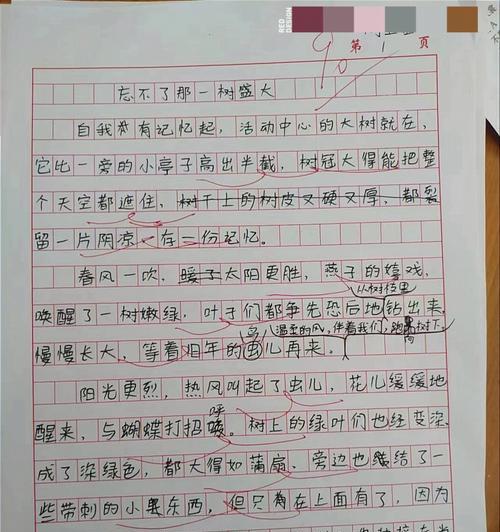 RED DESIGN
90
第 1 页
忘不了那一树盛大
自我有记忆起，活动中心的大树就在，
它比一旁的小亭子高出半截，树冠大得能把整
个天空都遮住，树干上的树皮又硬又厚，都裂
留一片阴凉，存一份记忆。
春风一吹，暖了太阳更胜，燕子的嬉戏，
从树枝里
唤醒了一树嫩绿，叶子们都争先恐后地钻出来，
鸟 温柔的风，伴着我们，跑向树下
慢慢长大，等着旧年的虫儿再来。
阳光更烈，热风叫起了虫儿，花儿缓缓地
呼
醒来，与蝴蝶打招。树上的绿叶们也经变深，
成了深绿色，都大得如蒲扇。旁边也结了一
些带刺的小果东西，但只有在上面有了，因为